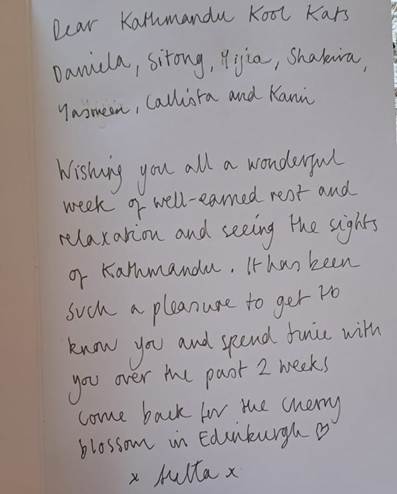 Dear Kathmandu Kool Kats
Daniela, Sitong, Yijia, Shakira,
Yasmeen, Callista and
Wishing you all a wonderful
week of well-earned rest and
relaxation and seeing the sights
of Kathmandu. It has been
such a pleasure to get to
know you and spend time with
you over the past 2 weeks
come back for the cherry
blossom in Edinburgh ♡
x x